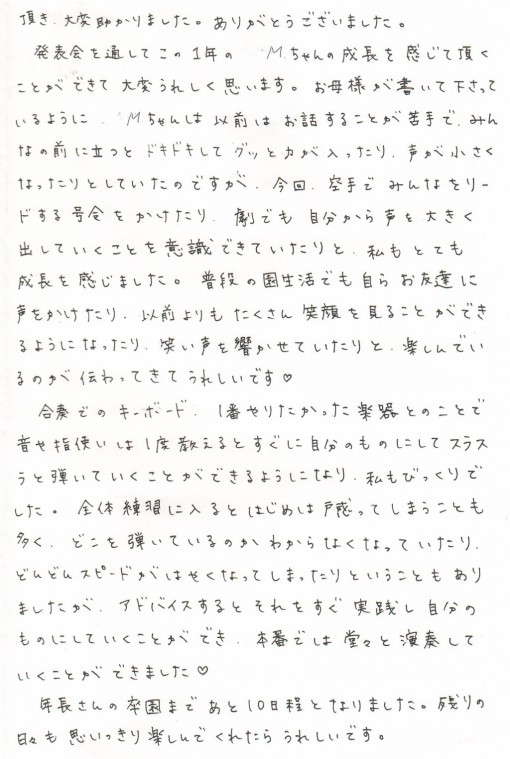 頂き、大変助かりました。ありがとうございました。
発表会を通してこの1年の Mちゃんの成長を感じて頂く
ことができて大変うれしく思います。お母様が書いて下さって
いるように、Mちゃんは以前はお話することが苦手で、みん
なの前に立つとドキドキしてグッと力が入ったり、声が小さく
なったりとしていたのですが、今回、空手でみんなをリー
ドする号令をかけたり、劇でも自分から声を大きく
出していくことを意識できていたりと、私もとても
成長を感じました。普段の園生活でも自らお友達に
声をかけたり、以前よりもたくさん笑顔を見ることができ
るようになったり、笑い声を響かせていたりと、楽しんでい
るのが伝わってきてうれしいです♡
合奏でのキーボード、1番やりたかった楽器とのことで
音や指使いは1度教えるとすぐに自分のものにしてスラス
ラと弾いていくことができるようになり、私もびっくりで
した。全体練習に入るとはじめは戸惑ってしまうことも
多く、どこを弾いているのかわからなくなっていたり、
どんどんスピードがはやくなってしまったりということもあり
ましたが、アドバイスするとそれをすぐ実践し自分の
ものにしていくことができ、本番では堂々と演奏して
いくことができました♡
年長さんの卒園まであと10日程となりました。残りの
日々も思いっきり楽しんでくれたらうれしいです。